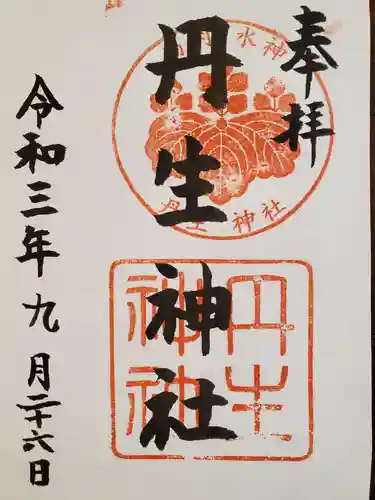 奉拝
水神
丹生神社
丹生神社
丹生神社
令和三年九月二十六日